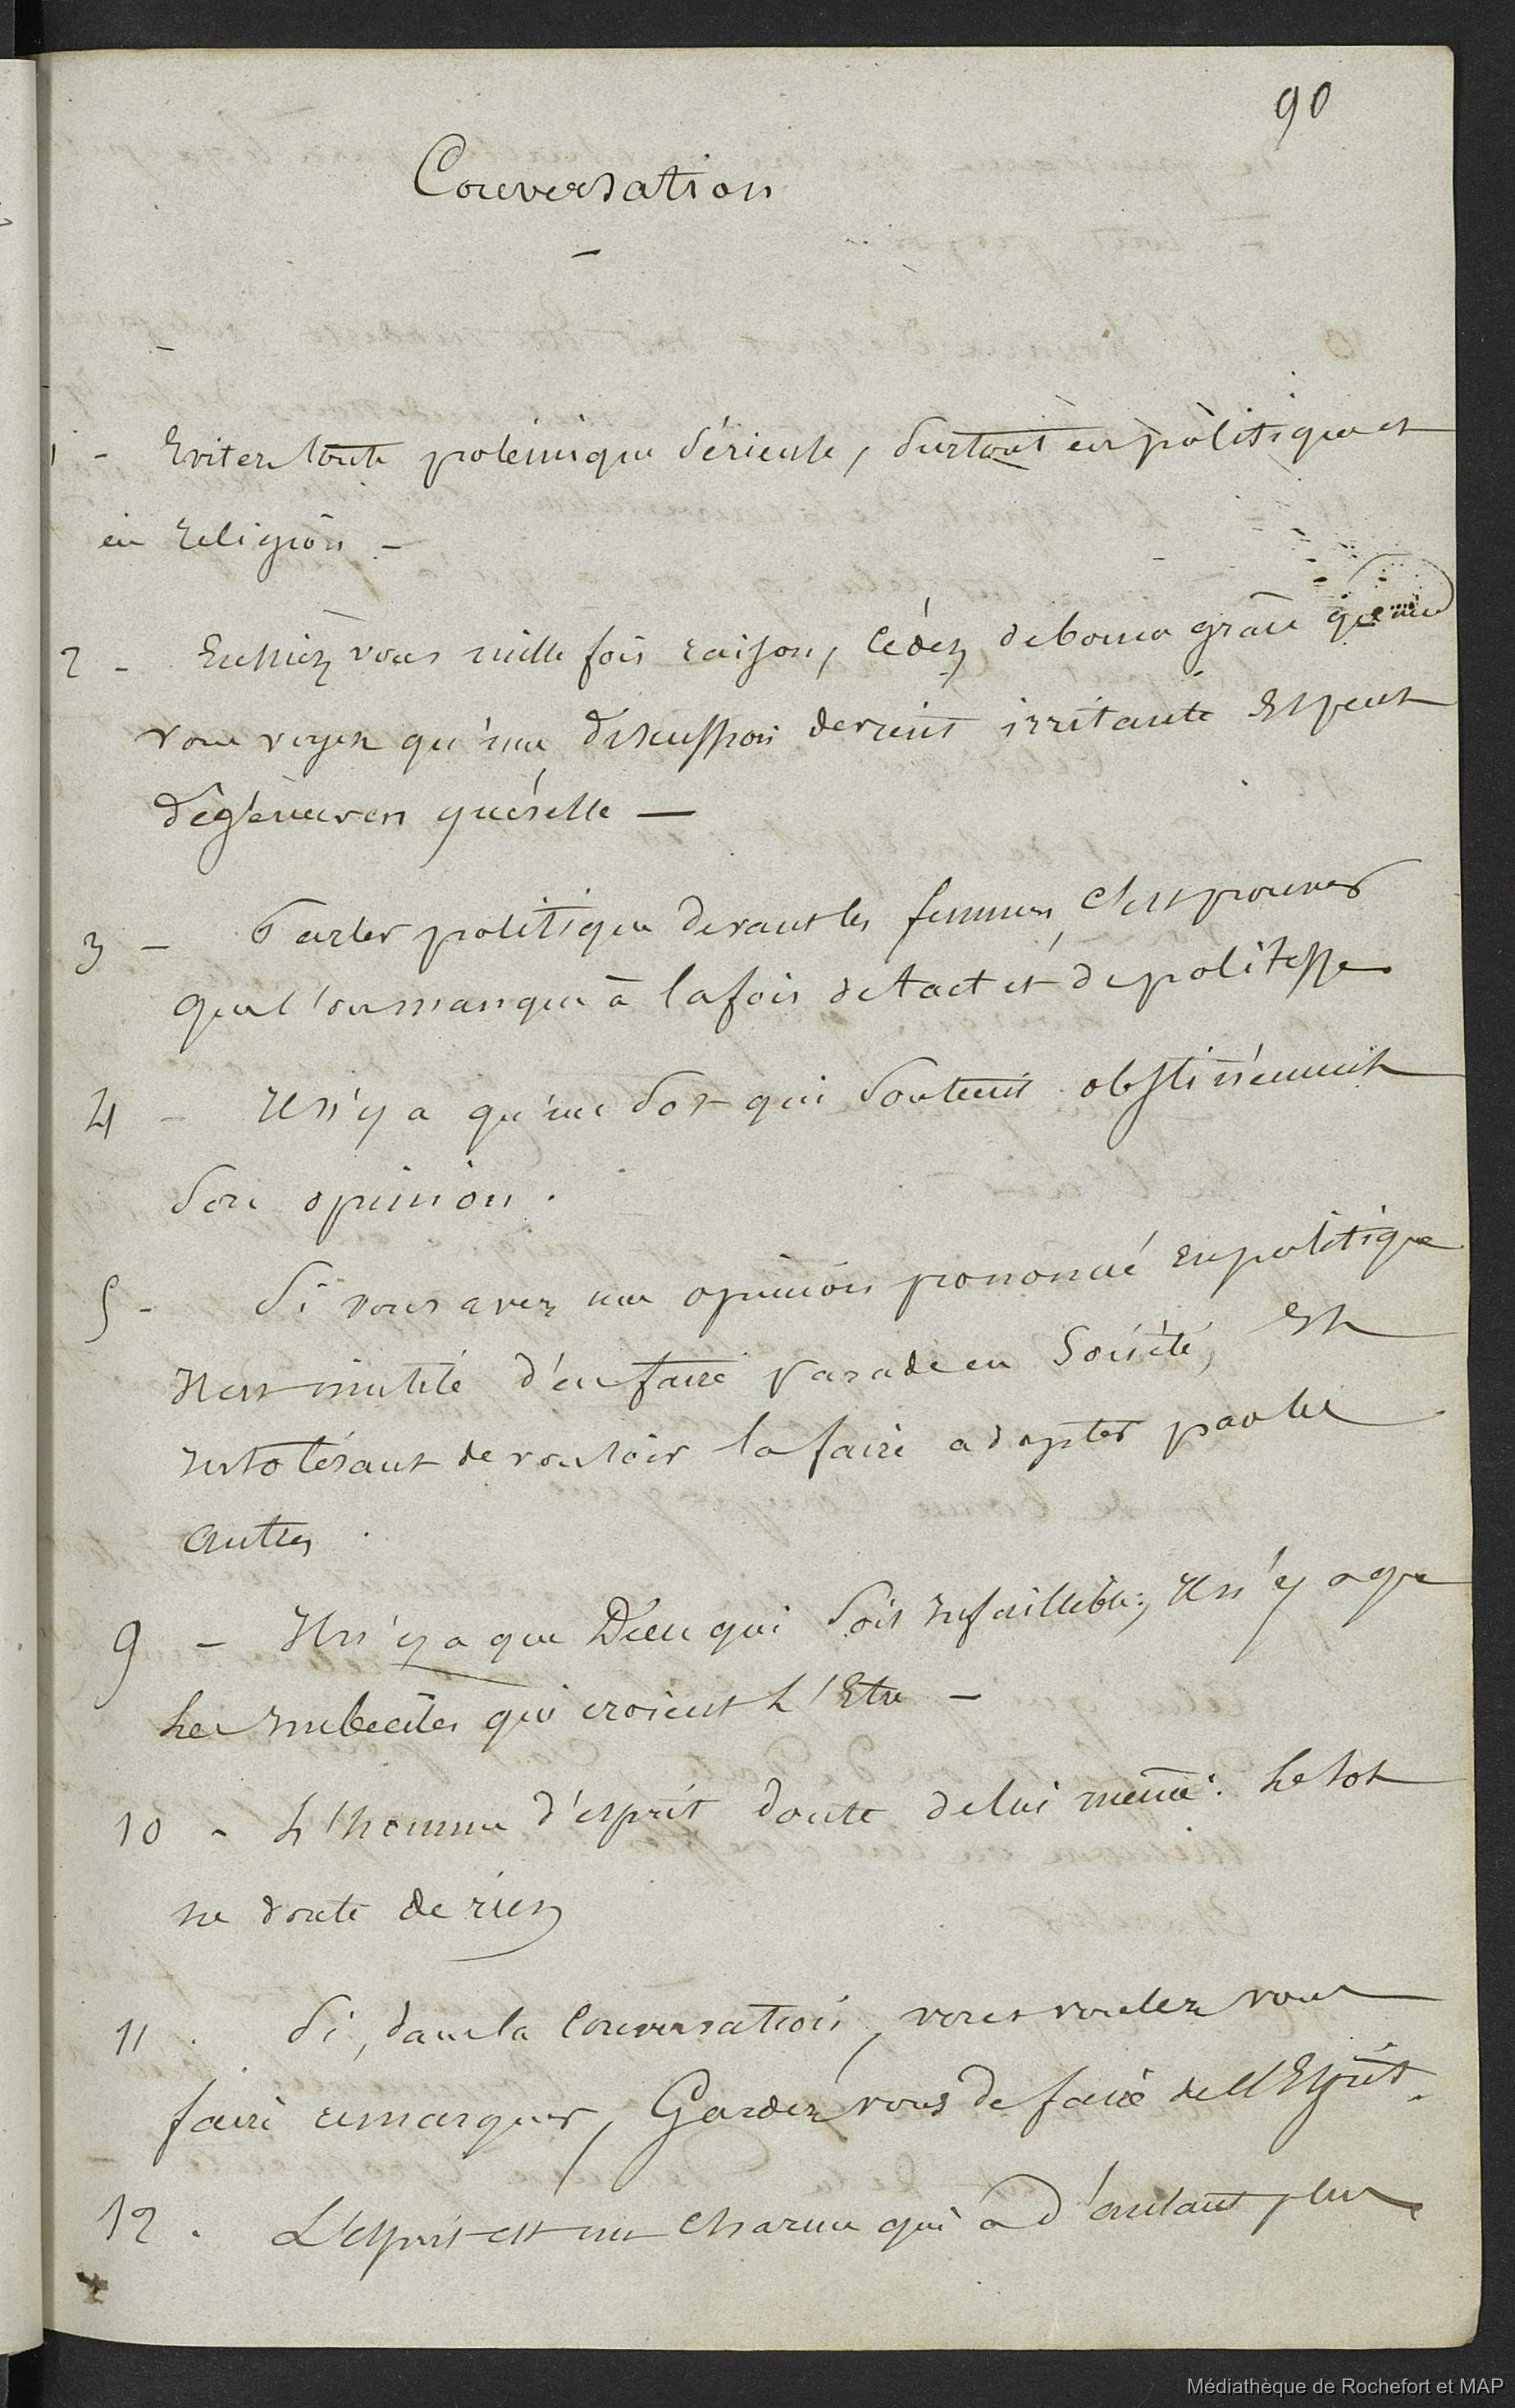 90
Conversation
1 - Evitez toute polémique sérieuse, surtout en politique et
en religion -
2 - Eussiez vous mille fois raison, cédez de bonne grâce
vous voyez qu'une discussion devient irritante Et peut
dégénérer en querelle —
3 - Parler politique devant les femmes, C'est prouver
que l'on manque à la fois de tact et de politesse
4 - Il n'y a qu'un sot qui soutient obstinément
son opinion.
5 - Si vous avez une opinion prononcé en politique
Il est inutile d'en faire parade en Société, Et
intolérant de vouloir la faire adopter par les
autres.
9 - Il n'y a que Dieu qui soit infaillible; Il n'y a que
les imbeciles qui croient L'Etre -
10 - L'homme d'esprit doute de lui même. Le sot
ne doute de rien
11. Si, dans la Conversation, vous voulez vous
faire remarquer, Gardez vous de faire de l'Esprit.
12. L'esprit est un charme qui a d'autant plus
Médiathèque de Rochefort et MAP